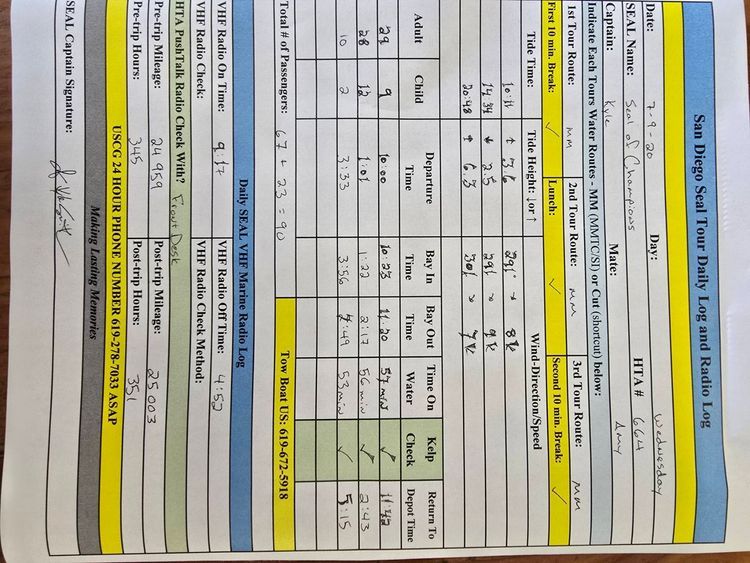 San Diego Seal Tour Daily Log and Radio Log
Date: 7-9-20 Day: Wednesday
SEAL Name: Seal of Champions HTA# 664
Captain: Kyle Mate: Amy
Indicate Each Tours Water Routes - MM (MMTC/SI) or Cut (shortcut) below:
1st Tour Route: MM 2nd Tour Route: MM 3rd Tour Route: MM
First 10 min. Break: ✓ Lunch: ✓ Second 10 min. Break: ✓
Tide Time: Tide Height: ↓or↑ Wind-Direction/Speed
10:11 ↑ 3.6 291° → 8k
14:34 ↓ 2.5 291 → 9k
20:48 ↑ 6.3 301 → 7k
Adult Child Departure Time Bay In Time Bay Out Time Time On Water Kelp Check Return To Depot Time
29 9 10:00 10:23 11:20 57 min ✓ 11:42
28 12 1:01 1:22 2:17 56 min ✓ 2:43
10 2 3:33 3:56 4:49 53 min ✓ 5:15
Total # of Passengers: 67 + 23 = 90 Tow Boat US: 619-672-5918
Daily SEAL VHF Marine Radio Log
VHF Radio On Time: 9:17 VHF Radio Off Time: 4:52
VHF Radio Check: VHF Radio Check Method:
HTA PushTalk Radio Check With? Front Desk
Pre-trip Mileage: 24959 Post-trip Mileage: 25003
Pre-trip Hours: 345 Post-trip Hours: 351
USCG 24 HOUR PHONE NUMBER 619-278-7033 ASAP
Making Lasting Memories
SEAL Captain Signature: